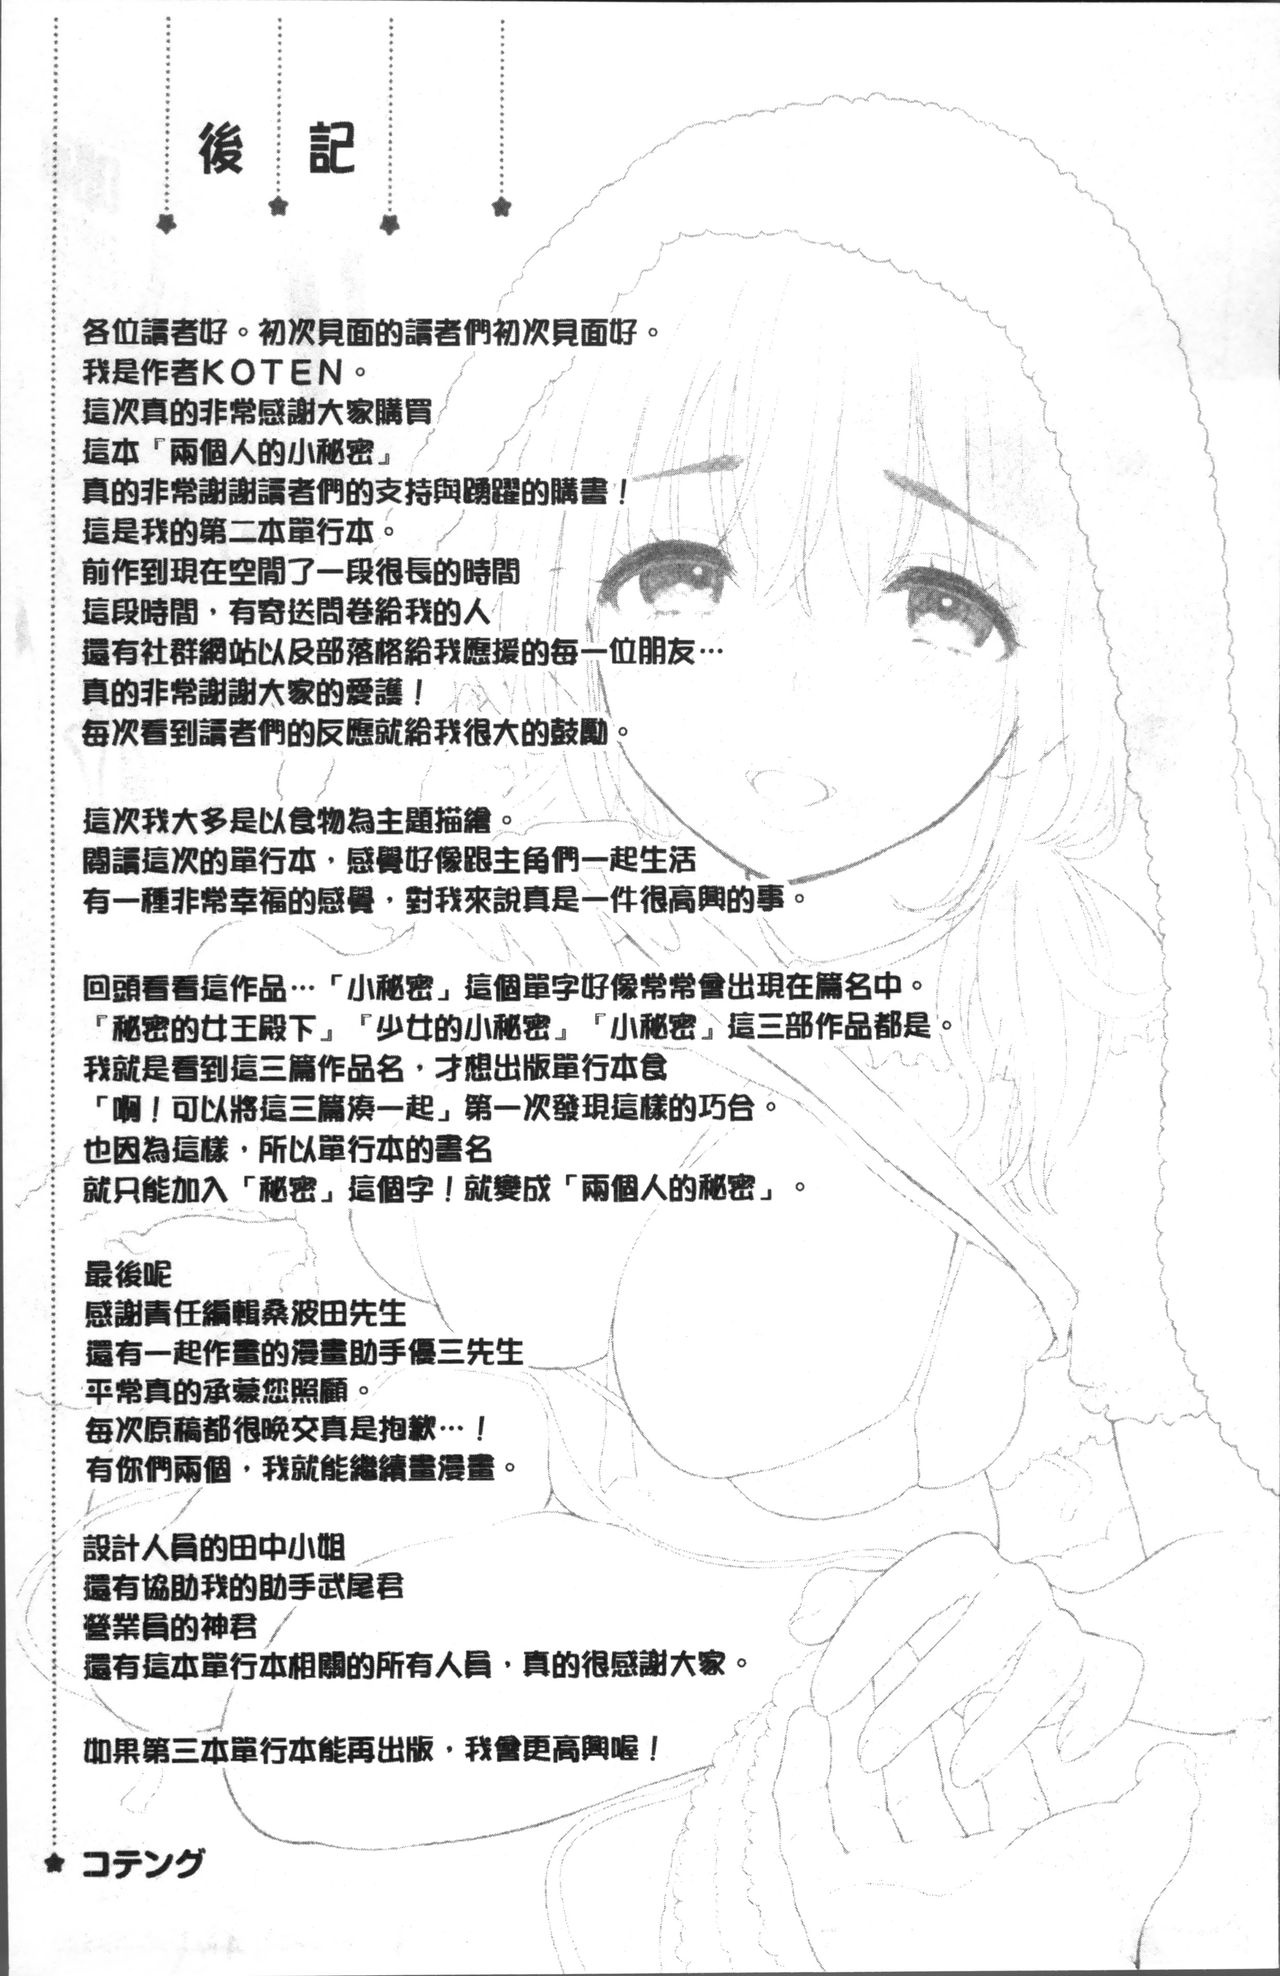 後記
各位讀者好。初次見面的讀者們初次見面好。
我是作者KOTEN。
這次真的非常感謝大家購買
這本『兩個人的小秘密』
真的非常謝謝讀者們的支持與踴躍的購書！
這是我的第二本單行本。
前作到現在空閒了一段很長的時間
這段時間，有寄送問卷給我的人
還有社群網站以及部落格給我應援的每一位朋友…
真的非常謝謝大家的愛護！
每次看到讀者們的反應就給我很大的鼓勵。
這次我大多是以食物為主題描繪。
閱讀這次的單行本，感覺好像跟主角們一起生活
有一種非常幸福的感覺，對我來說真是一件很高興的事。
回頭看看這作品…「小秘密」這個單字好像常常會出現在篇名中。
『秘密的女王殿下』『少女的小秘密』「小秘密」這三部作品都是。
我就是看到這三篇作品名，才想出版單行本食
「啊！可以將這三篇湊一起」第一次發現這樣的巧合。
也因為這樣，所以單行本的書名
就只能加入「秘密」這個字！就變成「兩個人的秘密」。
最後呢
感謝責任編輯桑波田先生
還有一起作畫的漫畫助手優三先生
平常真的承蒙您照顧。
每次原稿都很晚交真是抱歉…！
有你們兩個，我就能繼續畫漫畫。
設計人員的田中小姐
還有協助我的助手武尾君
營業員的神君
還有這本單行本相關的所有人員，真的很感謝大家。
如果第三本單行本能再出版，我會更高興喔！
コテング